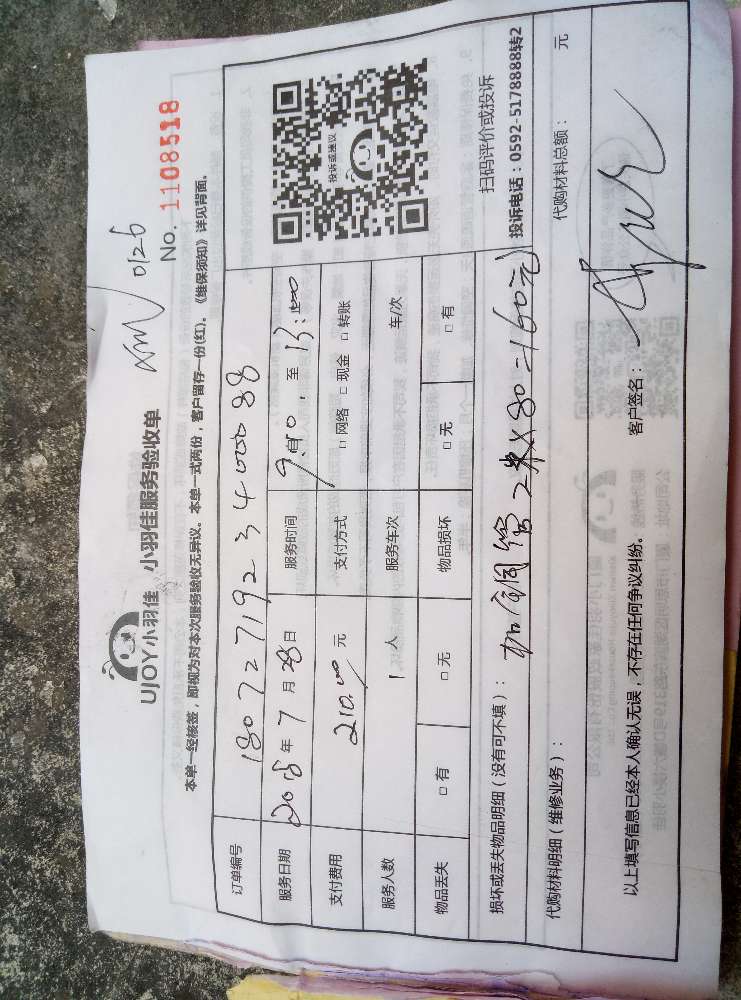 UJOY小羽佳 小羽佳服务验收单
0126
No. 1108518
本单一经核签，即视为对本次服务验收无异议。本单一式两份，客户留存一份(红)。《维保须知》详见背面。
订单编号 180727192340000 88
服务日期 2018年7月28日 服务时间 9:00，至 13:00
支付费用 210.00元 支付方式 □网络 □现金 □转账
服务人数 1人 服务车次 车/次
物品丢失 □有 □无 物品损坏 □无 □有
投诉或建议
扫码评价或投诉
投诉电话：0592-5178888转2
损坏或丢失物品明细（没有可不填）： 加铜管2米X80=160元
代购材料明细（维修业务）： 代购材料总额： 元
以上填写信息已经本人确认无误，不存在任何争议纠纷。 客户签名：